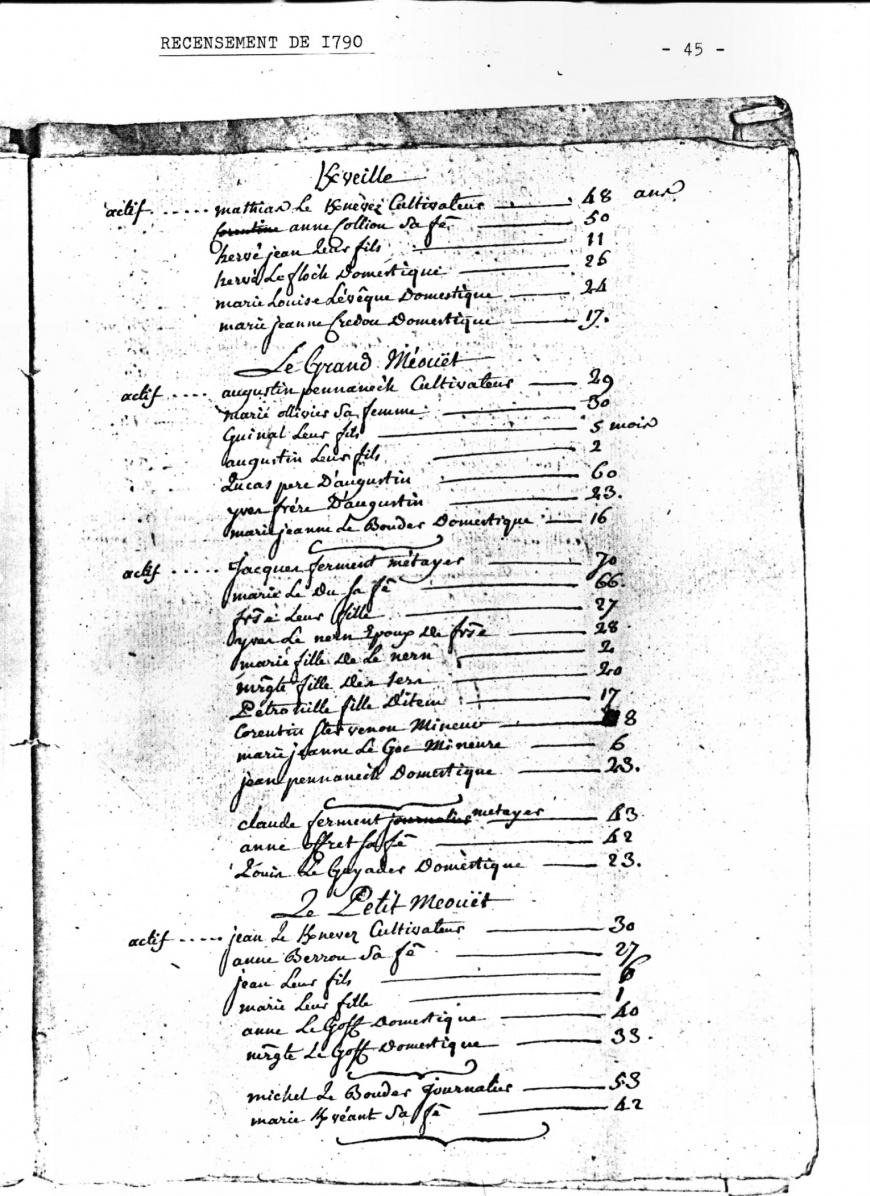 RECENSEMENT DE I790
- 45 -
K/veille
actif ..... mathias Le K/nevez Cultivateur — 48 ans
corentine anne Collion Sa fē — 50
hervé jean Leurs fils — 11
hervé Le floch Domestique — 26
marie Louise Lévêque Domestique — 24
marie jeanne Credou Domestique — 17.
Le Grand Méouët
actif .... augustin pennanech Cultivateur — 29
marie ollivier Sa femme — 30
Guinal Leur fils — 5 mois
augustin Leur fils — 2
Lucas pere D'augustin — 60
yves frére D'augustin — 23.
marie jeanne Le Bouder Domestique — 16
actif ..... Jacques ferment métayer — 70
marie Le Du sa fē — 66.
frsē Leur fille — 27
yves Le nern Epoux De frsē — 28
marie fille De Le nern — 2
mrgte fille Des 1ers — 20
Pétronille fille D'item — 17
Corentin Mineur — 8
marie jeanne Le Goc Mineure — 6
jean pennanech Domestique — 23.
claude ferment journalier métayer — 43
anne offret sa fē — 42
Louis Le Guyader Domestique — 23.
Le Petit Meouët
actif ..... jean Le K/nevez Cultivateur — 30
anne Berrou Sa fē — 27
jean Leur fils — 6
marie Leur fille — 1
anne Le Goff Domestique — 40
mrgte Le Goff Domestique — 33.
michel Le Bouder journalier — 53
marie K/véant Sa fē — 42